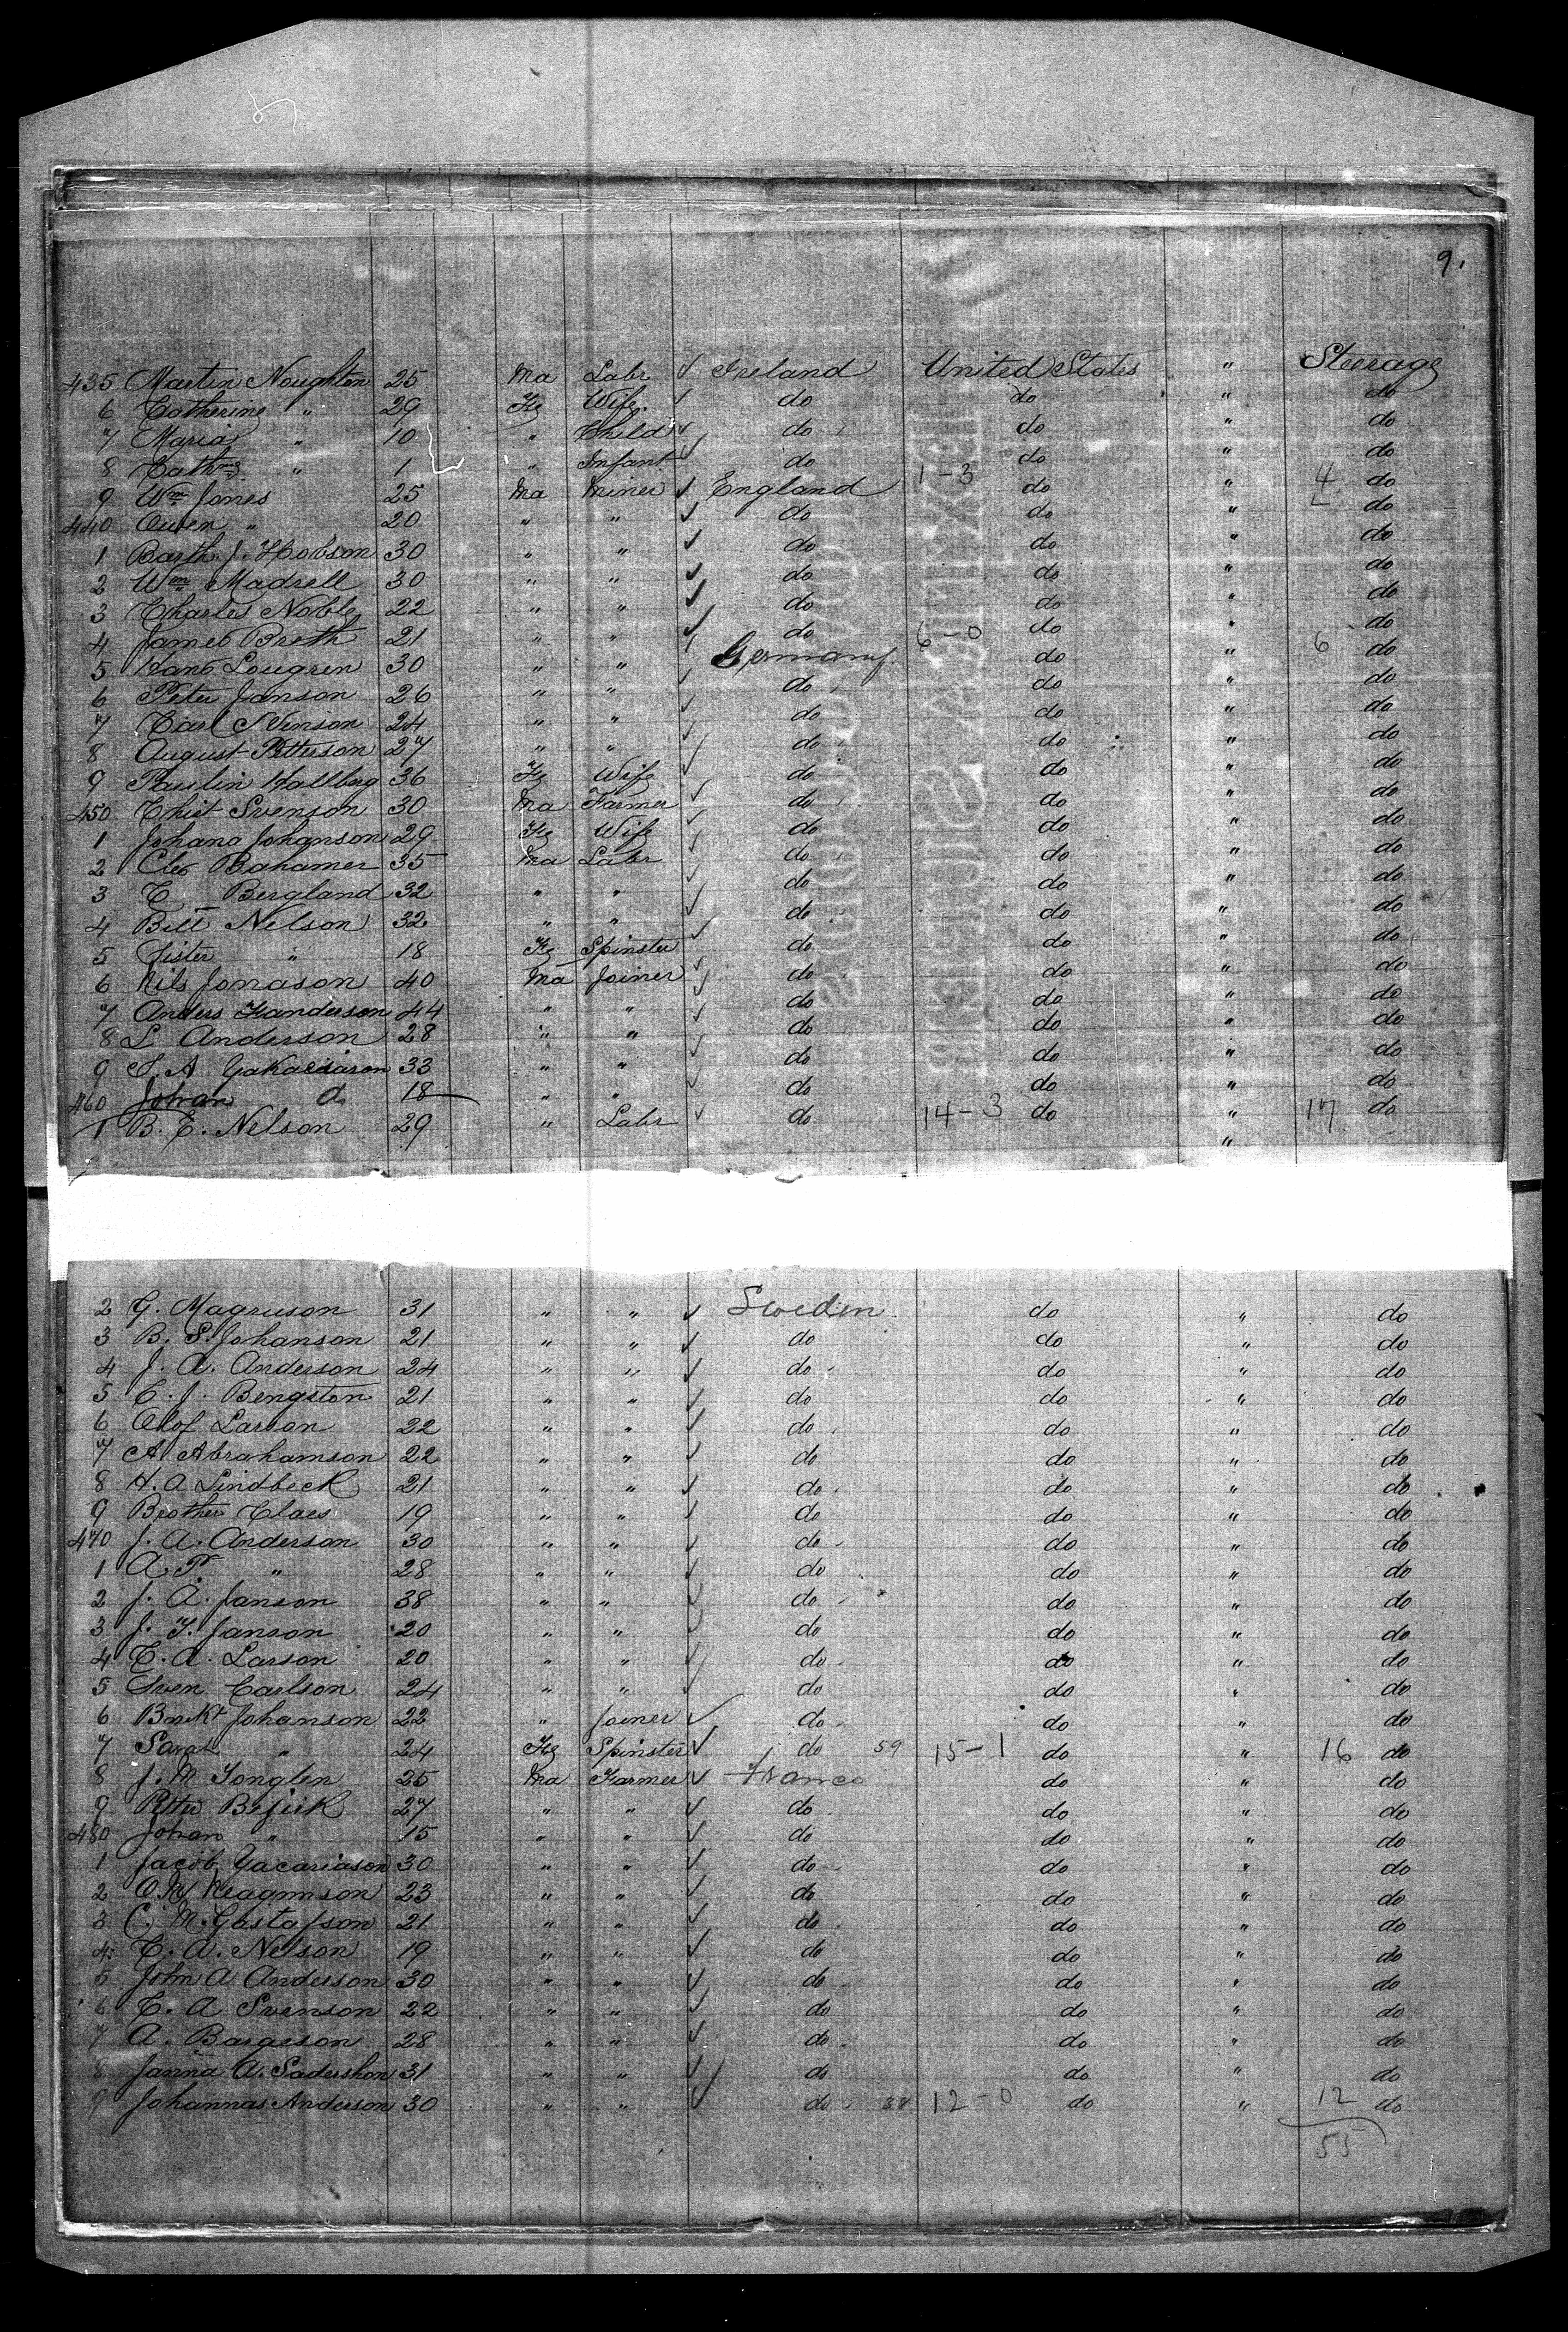 9.
435 Martin Noughton 25 Ma Labr ✓ Ireland United States " Steerage
6 Catherine " 29 Fe Wife ✓ do do " do
7 Maria " 10 " Child ✓ do do " do
8 Cath " 1 " Infant ✓ do 1-3 do " 4 do
9 Wm Jones 25 Ma Miner ✓ England do " do
440 Owen " 20 " " ✓ do do " do
1 Barth. J. Hobson 30 " " ✓ do do " do
2 Wm Madrell 30 " " ✓ do do " do
3 Charles Noble 22 " " ✓ do do " do
4 James Breth 21 " " ✓ do 6-0 do " 6 do
5 Hans Lougren 30 " " ✓ Germany do " do
6 Peter Janson 26 " " ✓ do do " do
7 Carl Svenson 24 " " ✓ do do " do
8 August Petterson 27 " " ✓ do do " do
9 Paulin Hallberg 36 Fe Wife ✓ do do " do
450 Christ Svenson 30 Ma Farmer ✓ do do " do
1 Johana Johanson 29 Fe Wife ✓ do do " do
2 Cles Bahamer 35 Ma Labr ✓ do do " do
3 C Bergland 32 " " ✓ do do " do
4 Bill Nelson 32 " " ✓ do do " do
5 Sister " 18 Fe Spinster ✓ do do " do
6 Nils Jonason 40 Ma Joiner ✓ do do " do
7 Anders Handerson 44 " " ✓ do do " do
8 L Anderson 28 " " ✓ do do " do
9 S. A 33 " " ✓ do do " do
460 Johan do 18 " " ✓ do do " do
1 B. E. Nelson 29 " Labr ✓ do 14-3 do " 17 do
2 G. Magnuson 31 " " ✓ Sweden do " do
3 B. S. Johanson 21 " " ✓ do do " do
4 J. A. Anderson 24 " " ✓ do do " do
5 C. J. Bengston 21 " " ✓ do do " do
6 Olof Larson 22 " " ✓ do do " do
7 A Abrahamson 22 " " ✓ do do " do
8 H. A Lindbeck 21 " " ✓ do do " do
9 Brother Claes 19 " " ✓ do do " do
470 J. A. Anderson 30 " " ✓ do do " do
1 A. P. " 28 " " ✓ do do " do
2 J. A. Janson 38 " " ✓ do do " do
3 J. F. Janson 20 " " ✓ do do " do
4 C. A. Larson 20 " " ✓ do do " do
5 Sven Carlson 24 " " ✓ do do " do
6 Johanson 22 " Joiner ✓ do do " do
7 Sarah " 24 Fe Spinster ✓ do 59 15-1 do " 16 do
8 J. M Tonglen 25 Ma Farmer ✓ France do " do
9 Petter 27 " " ✓ do do " do
480 Johan " 15 " " ✓ do do " do
1 Jacob Yacariason 30 " " ✓ do do " do
2 23 " " ✓ do do " do
3 C. M. Gustafson 21 " " ✓ do do " do
4 C. A. Nelson 19 " " ✓ do do " do
5 John A Anderson 30 " " ✓ do do " do
6 C. A Svenson 22 " " ✓ do do " do
7 A. Bargeson 28 " " ✓ do do " do
8 Janna A. Sadershon 31 " " ✓ do do " do
9 Johannas Anderson 30 " " ✓ do 12-0 do " 12 do
55